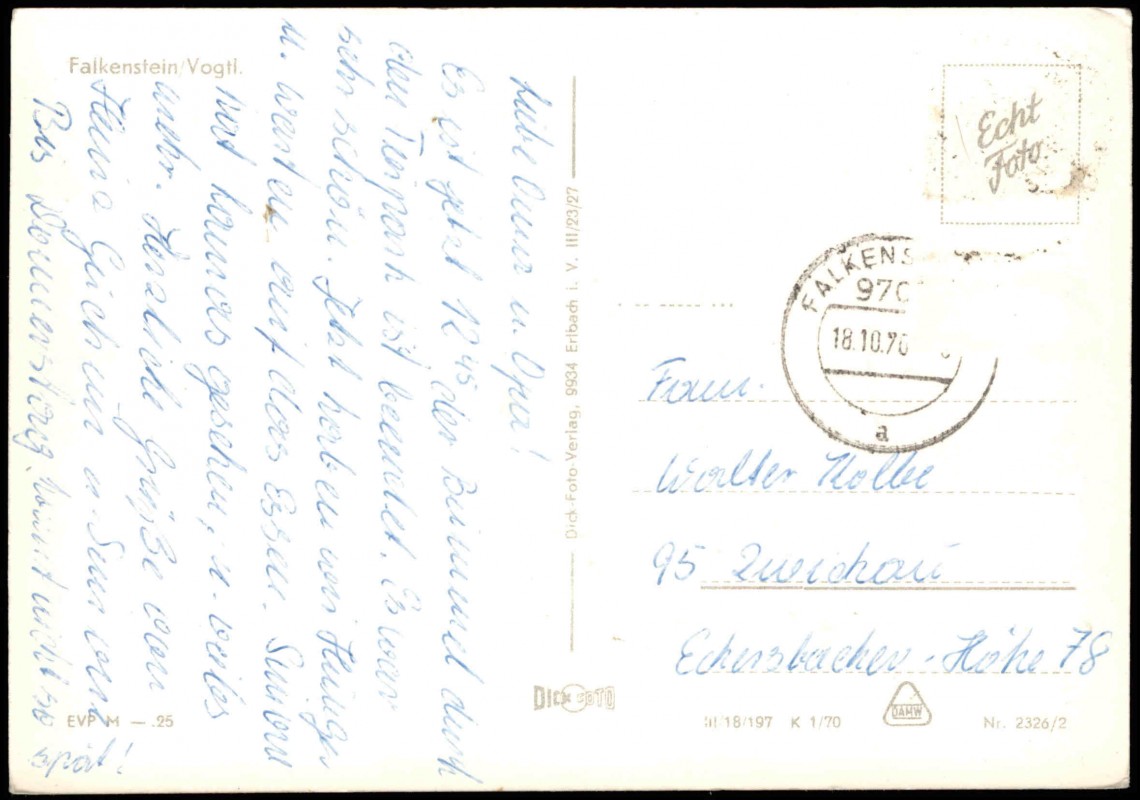 Falkenstein/Vogtl.
Liebe Oma u. Opa!
Es ist jetzt 12⁴⁵ der Bummel durch
den Tierpark ist beendet. Es war
sehr schön. Jetzt haben wir Hunger
u. warten auf das Essen.
hat Hannes gesehen, u. vieles
mehr. Herzliche Grüße von
Heinz Gerich un u.
Bis Donnerstag. Kommt nicht so
spät!
EVP M — .25
Dick-Foto-Verlag, 9934 Erlbach i. V. III/23/27
DICK FOTO
Echt
Foto
FALKENS
970
18.10.70
a
Frau
Walter Kolbe
95 Zwickau
Eckersbacher-Höhe 78
III/18/197 K 1/70
DAMW
Nr. 2326/2